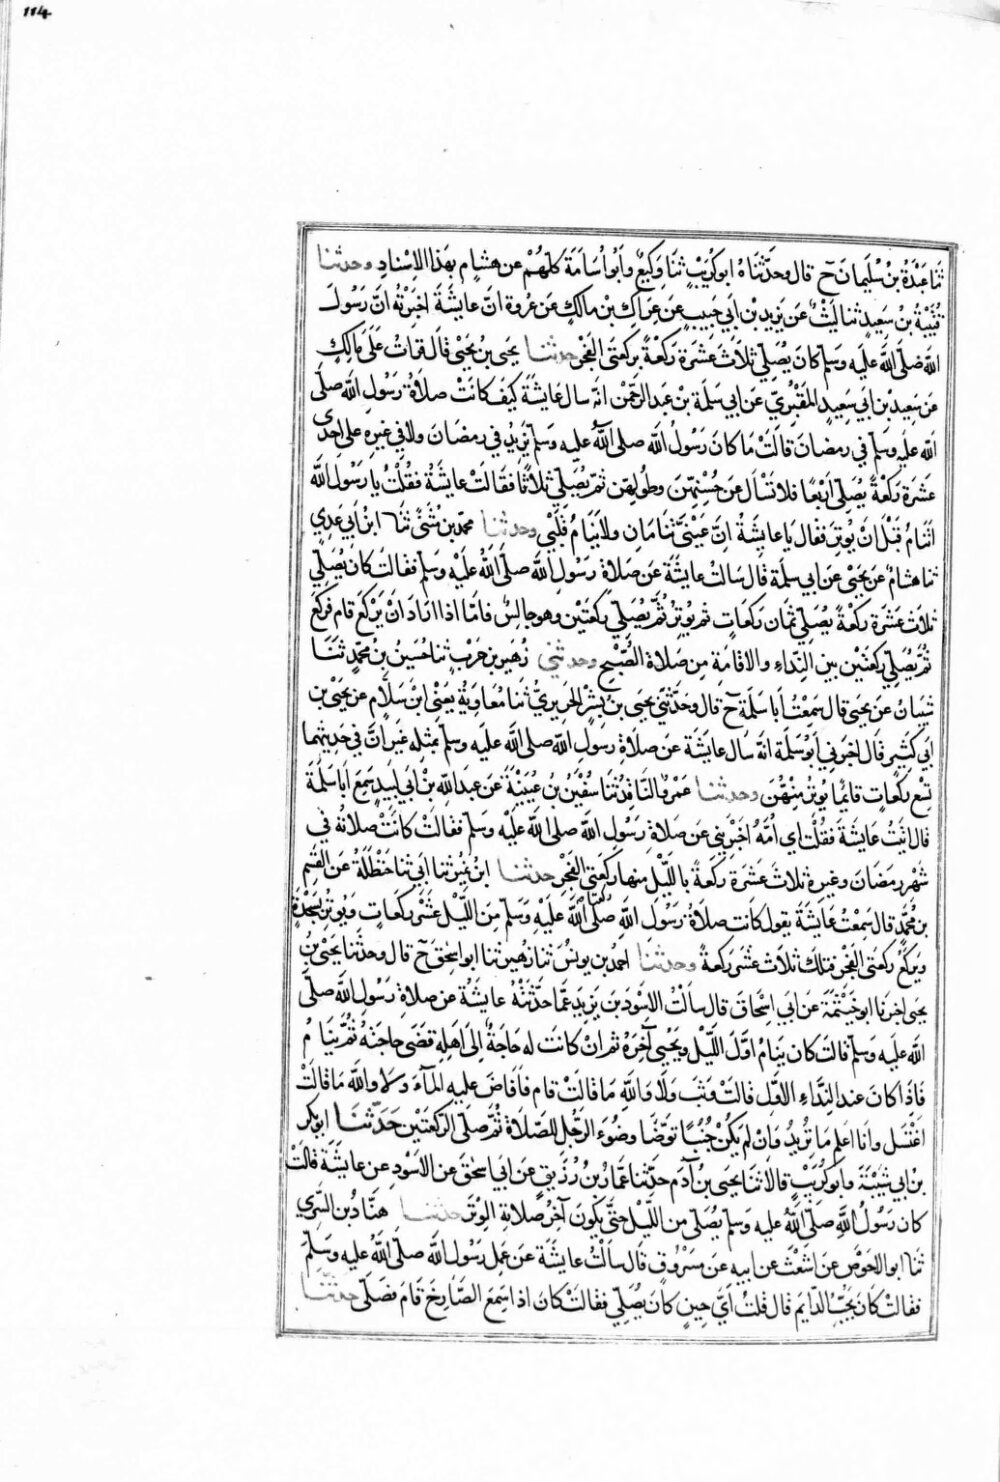 114
ثنا عبدة بن سليمان ح قال وحدثناه ابو كُرَيْبٍ ثنا وَكِيعٌ وأبو أسَامَة كلهُمْ عن هشام بهَذا الاِسْنادِ وحدثنا
قُتَيْبَةُ بن سَعِيدٍ ثنا لَيْثٌ عَن يَزِيد بن ابي حَبِيبٍ عَن عِرَاك بن مالكٍ عَن عروة انّ عايشَةَ اخبَرَتْه انَّ رَسُولَ
الله صلى اللهُ عليه وسلم كان يُصَلّي ثلاَثَ عَشرَة رَكعَةً بركعتَي الفَجْرِ حدثنا يحيى بن يَحْيَى قال قرَاتُ عَلَى مَالِكٍ
عَن سَعِيد بن ابي سَعِيدٍ المَقبُرِيّ عَن ابي سَلَمَة بن عَبد الرحمن انه سال عايشَةَ كيفَ كانَتْ صلاَةُ رَسُولِ الله صلى
الله عليه وسلم في رمضانَ قالَتْ مَا كانَ رَسُولُ الله صلى الله عليه وسلم يَزِيدُ في رمضَانَ ولا في غيرِهِ على احدَى
عَشرَة رَكْعَةً يُصَلّي اَرْبَعًا فلا تَسْأل عَن حُسْنِهِنَّ وطُولهِن ثمّ يُصَلّي ثلاَثًا فقَالَتْ عايشَةُ فقُلْتُ يا رَسُولَ الله
اَتَنامُ قَبْلَ اَنْ تُوتِرَ فقال يَا عايشَةُ اِنّ عَيْنَيَّ تَنَامَانِ ولا يَنَامُ قَلْبِي وحدثنا محمد بن مُثَنَّى ثنا ابنُ ابي عَدِيٍّ
ثنا هشامٌ عَن يَحيَى عَن ابي سلَمَة قال سَالتُ عايشَةَ عَن صَلاَةِ رَسُولِ الله صلَّى اللهُ عَلَيْهِ وسَلم فقالت كان يُصَلِّي
ثلاثَ عَشَرَة رَكْعَةً يُصَلّي ثمَان رَكَعَاتٍ ثم يُوتِرُ ثُمَّ يُصَلِّي رَكْعَتَيْنِ وهو جالِسٌ فامّا اذا ارَادَ انْ يَرْكَعَ قام فرَكعَ
ثُمَّ يُصَلّي رَكعَتَيْنِ بين النِّدَاءِ والاقامَةِ مِن صَلاة الصُّبْحِ وحدثني زُهَير بن حَربٍ ثنا حُسَينُ بن محمّدٍ ثَنَا
شَيبَانُ عَن يحيَى قال سَمِعْتُ أبا سَلمَة ح قال وحَدّثني يَحيَى بن بِشْرٍ الحَرِيرِيُّ ثنا مُعَاوِيَةُ يَعْنِي ابنَ سَلاّم عن يحيى بن
ابي كَثِير قال اخبرني ابو سَلَمَة انهُ سَال عايشَة عَن صَلاَةِ رسولِ الله صلى الله عليه وسلم بمثلِهِ غير انَّ في حَدِيثِهما
تِسْع رَكعاتٍ قايمًا يُوتِرُ مِنهُنَّ وحدثنا عَمْرو النّاقِدُ ثنا سُفْينُ بن عُيَيْنَةَ عَن عَبد اللهِ بْن ابي لَبِيدٍ سَمِعَ ابَا سَلَمَةَ
قال اتَيتُ عايشَة فقُلْتُ اي اُمَّهْ اَخبِرِيني عَن صَلاَةِ رَسُولِ الله صلى اللهُ عَلَيْهِ وسلم فقالتْ كانتْ صلاته في
شَهْرِ رَمضَان وغيرِهِ ثلاثَ عَشرَة رَكعَةً بالليْلِ منها رَكعَتي الفَجْرِ حدثنا ابنُ نُمَيْرٍ ثنا ابي ثنا حَنْظَلَةُ عَن القٰسم
بن مُحمَّدٍ قال سَمِعْتُ عَايشَةَ تقول كانَت صلاة رَسُولِ الله صَلَّى اللهُ عَلَيهِ وسَلم مِنَ اللّيْلِ عَشرَ رَكَعاتٍ ويُوتِر بسَجدَةٍ
ويَرْكَعُ رَكعَتَي الفَجْرِ فتلك ثلاَثَ عَشرَ ركعَةً وحدثنا احمَد بن يونُسَ ثنا زُهَيرٌ ثنا ابو اسحٰق ح قال وحدثنا يحيى بن
يحيى اخبرنا ابو خَيْثَمَةَ عَن ابي اِسْحَاقَ قال سالْتُ الاَسْوَدَ بن يَزِيدَ عمّا حَدَّثَتْهُ عايشَة عن صلاَةِ رَسُولِ الله صلى
الله عَلَيه وسلم قالت كان يَنامُ اوَّلَ اللَّيْلِ ويُحْيي آخِرَهُ ثم ان كانَت له حَاجَةٌ اِلَى اَهلِه قَضَى حاجَتَهُ ثُمّ يَنَامُ
فاذا كانَ عند النِّدَاءِ الاوَّل قالَتْ وَثَبَ وَلاَ وَاللهِ مَا قالَتْ قام فَاَفَاضَ عليه المآءَ وَلا والله مَا قالَتْ
اغْتَسَل وانا اعلم مَا تُرِيدُ وَانْ لم يَكُنْ جُنُبًا تَوضّا وضُوءَ الرّجُلِ للصّلاَة ثمّ صَلّى الركعَتَيْنِ حَدّثنَا ابو بكر
بن ابي شَيْبَةَ وابو كُرَيْبٍ قالا ثنا يَحيَى بنُ آدَم حدّثنا عَمّارُ بْن رُزَيقٍ عَن ابي اسحٰقَ عَن الاَسْوَدِ عن عايشَةَ قالَتْ
كان رَسُولُ اللهِ صَلّى اللهُ عليه وسلم يُصَلّي من اللّيْلِ حتَّى يَكُونَ آخِرَ صَلاَتِهِ الوِتْرُ حدثنا هنّادُ بن السَّرِي
ثنا ابو الاحْوَصِ عن اشعَثَ عن ابيه عن مَسْرُوقٍ قال سالْتُ عايشَةَ عَن عمَلِ رَسُولِ الله صلّى اللهُ عليه وسلم
فقالتْ كان يُحِبُّ الدّايم قال قلتُ ايَّ حِينٍ كانَ يُصَلّي فقالَتْ كان اذا سمِعَ الصَّارِخَ قامَ فصَلَّى حدّثنَا